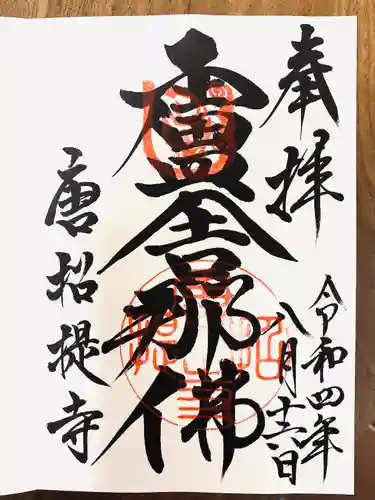 奉拝
令和四年
八月十三日
盧舎那佛
唐招提寺